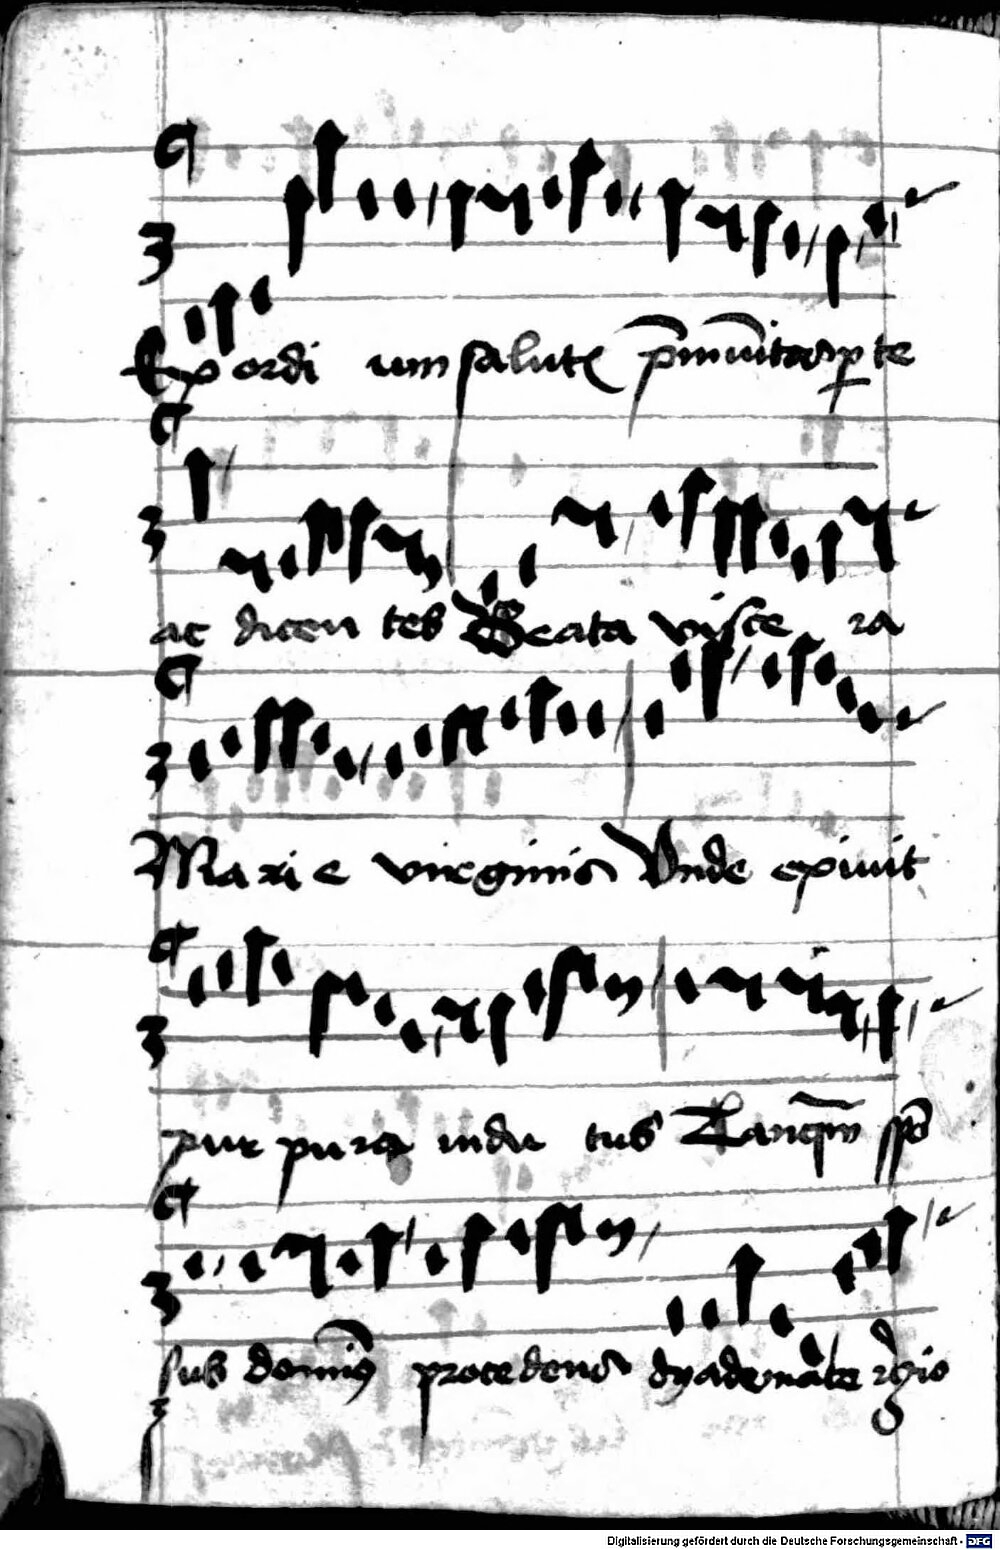 Exordi um salutis nostre nunciatus per te
ac dicen tes Beata visce ra
Mari e virginis Unde exivit
pur pura indu tus Tanqm spo
sus dominus procedens dyademate regio
Digitalisierung gefördert durch die Deutsche Forschungsgemeinschaft - DFG